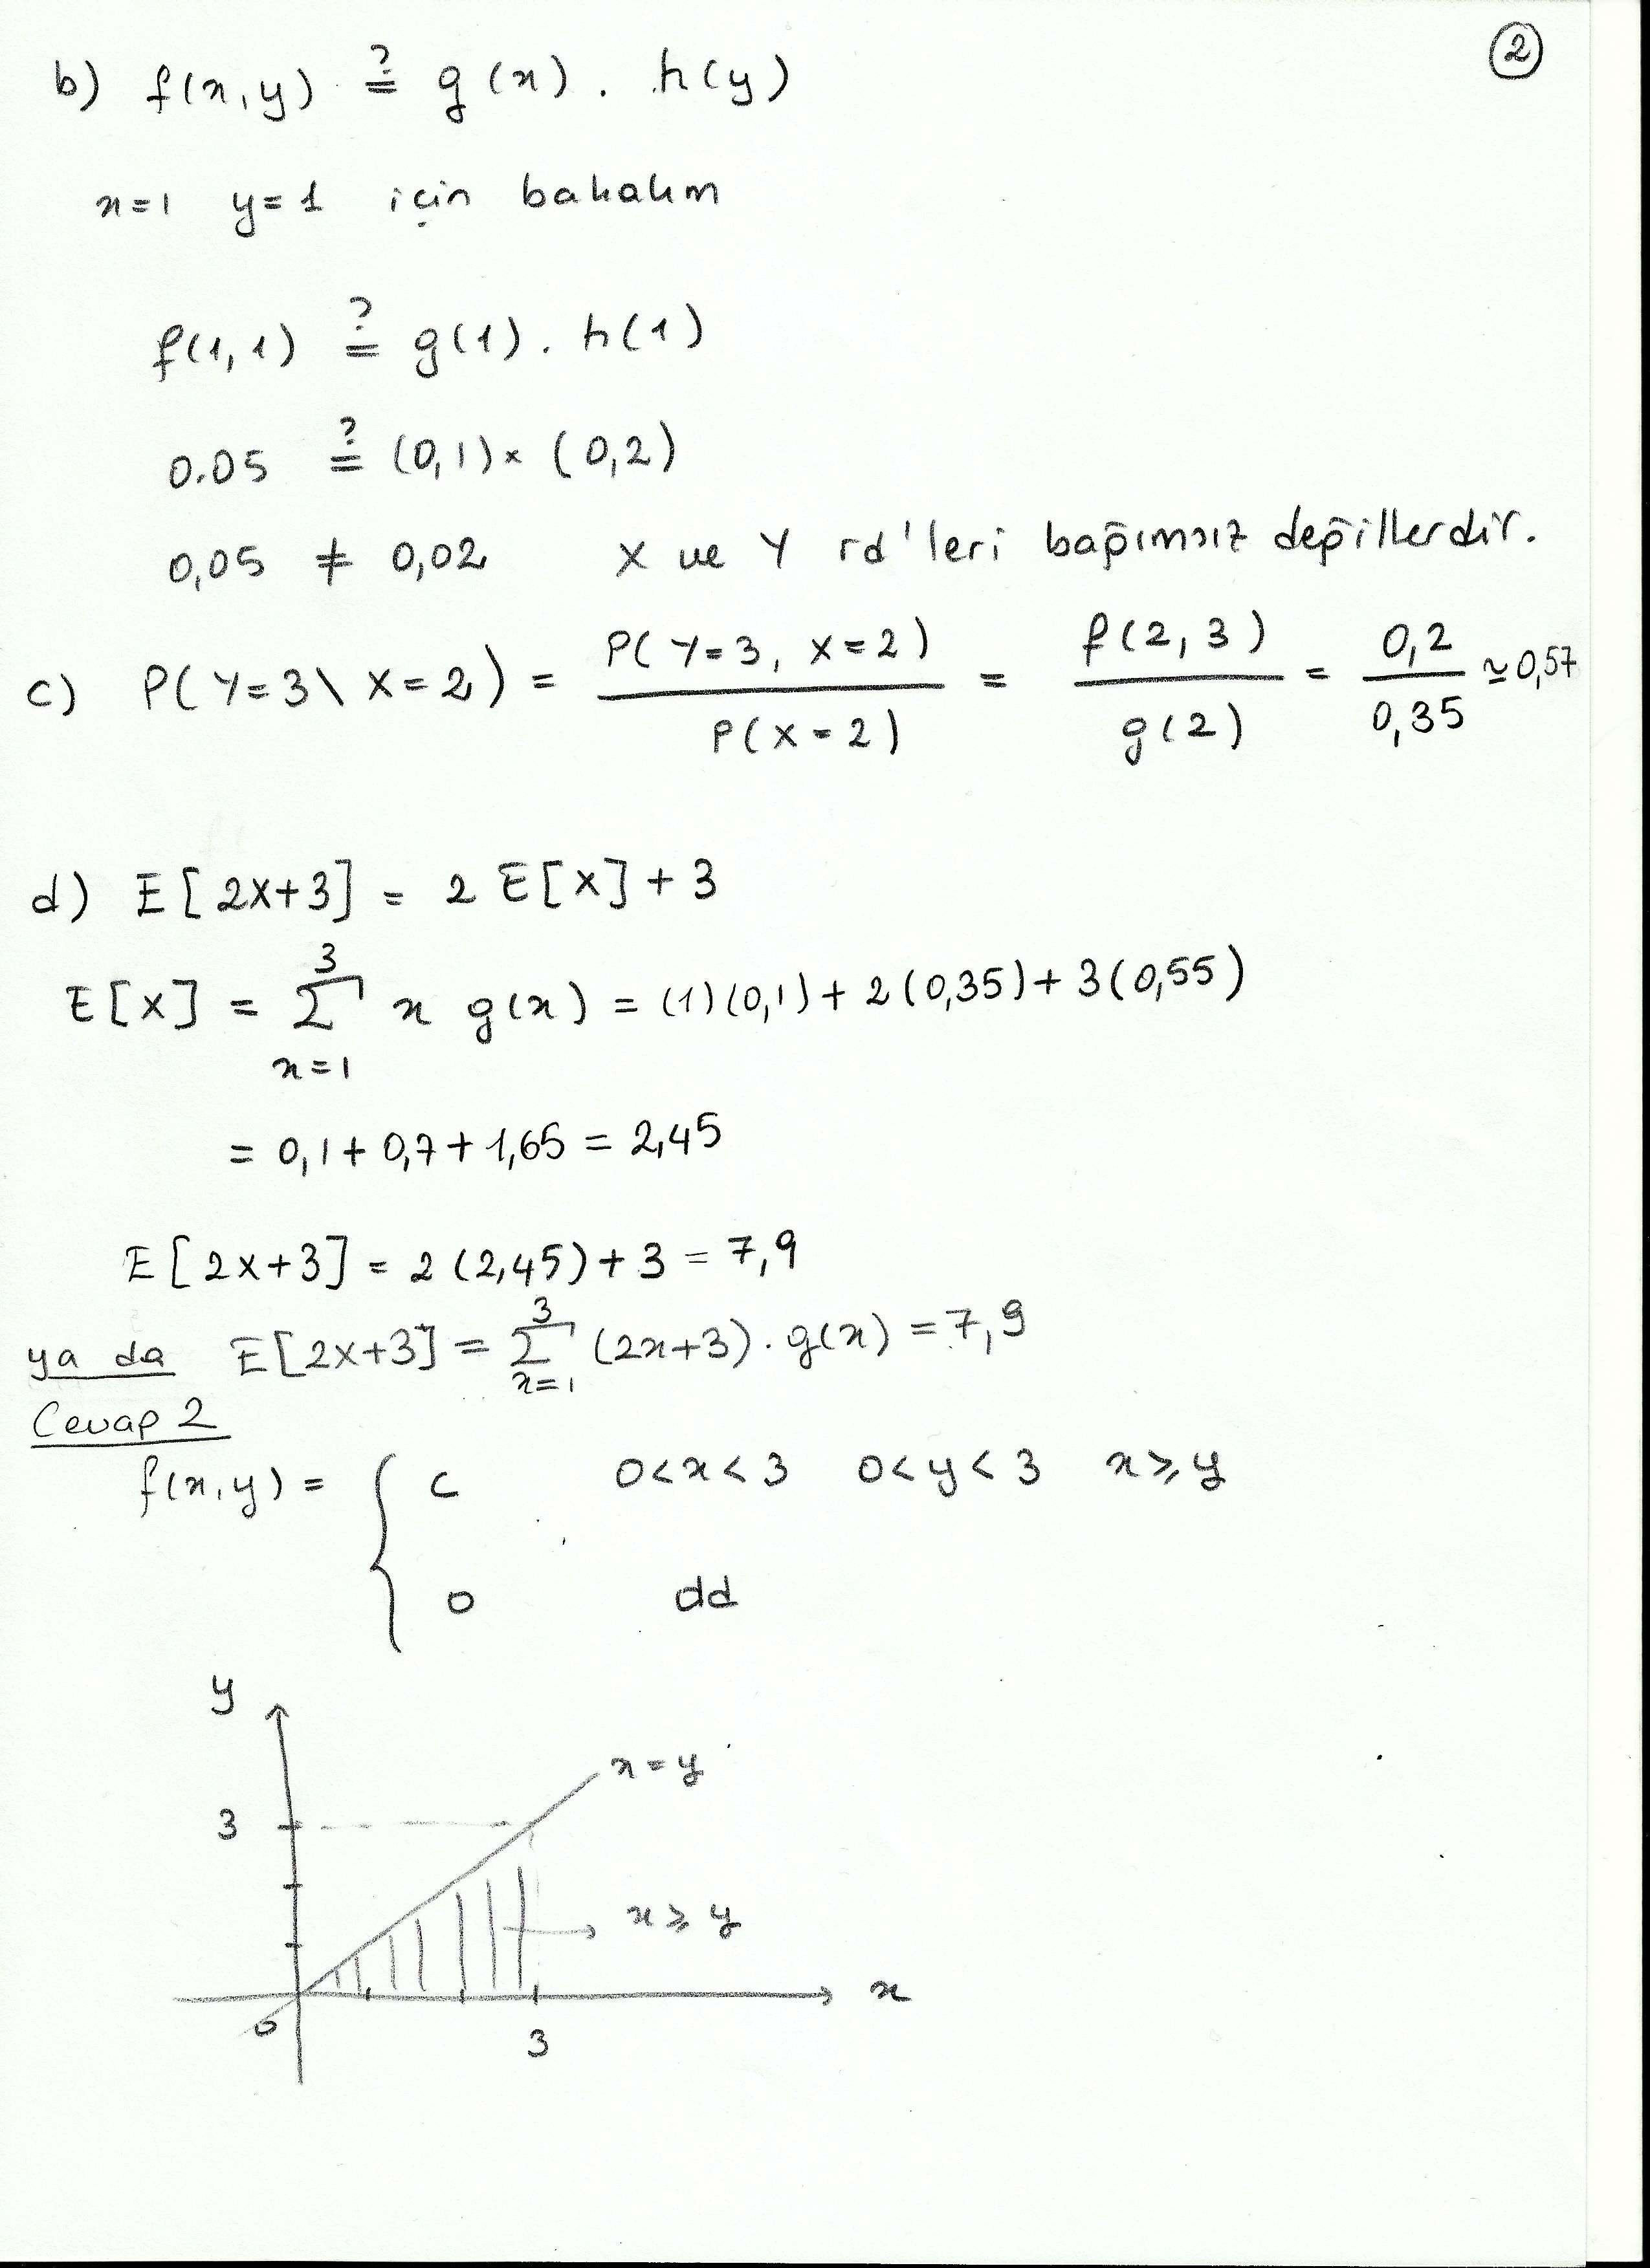 2
b) f(x,y) ≟ g(x) . h(y)
x=1 y=1 için bakalım
f(1,1) ≟ g(1) . h(1)
0.05 ≟ (0,1)x (0,2)
0,05 ≠ 0,02 X ve Y rd'leri bağımsız değillerdir.
c) P(Y=3 \ X=2) = P(Y=3, X=2) / P(X=2) = f(2,3) / g(2) = 0,2 / 0,35 ≃ 0,57
d) E[2X+3] = 2 E[X]+3
E[X] = Σ_{x=1}^{3} x g(x) = (1)(0,1)+ 2(0,35)+ 3(0,55)
= 0,1+0,7+1,65 = 2,45
E[2X+3] = 2(2,45)+3 = 7,9
ya da E[2X+3] = Σ_{x=1}^{3} (2x+3) . g(x) = 7,9
Cevap 2
f(x,y) = { c 0<x<3 0<y<3 x≥y
0 dd
y
x=y
3
x≥y
x
0
3